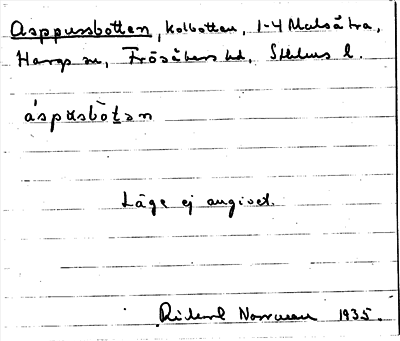 Asppussbotten, kolbotten, 1-4 Malsätra,
Hargs sn, Frösåkers hd, Sthlms l.
áspusbòt̲ən
Läge ej angivet.
Rickard Norrman 1935.